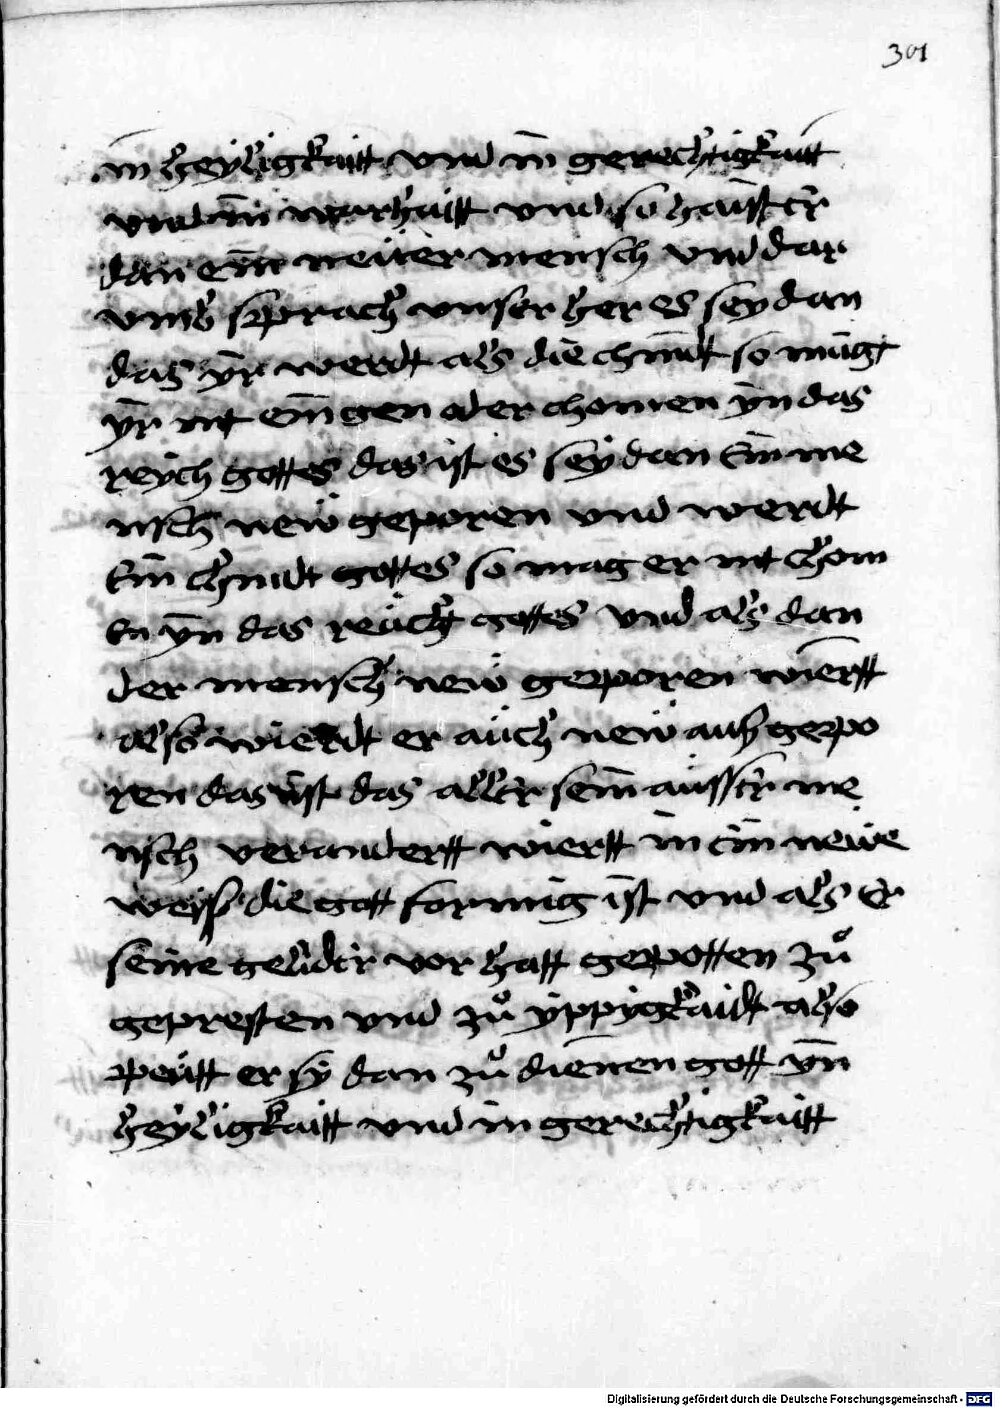 301
in heyligkaitt vnd in gerechtigkaitt
vnd in warhaitt vnd so haist er
dan ein neuer mensch vnd dar
vmb sprach vnser her es sey dan
das yr werdt als die chindt so mugt
yr nit ein gen oder chomen yn das
reych gottes das ist es sey dan ein me
nsch new geporen vnd werdt
ein chindt gottes so mag er nit chom
en yn das reich gottes vnd als dan
der mensch new geporen wiertt
also wierdt er auch new auß gepo
ren das ist das aller sein ausser me
nsch verandertt wiertt in ein newe
weiß die gott formig ist vnd als er
seine gelider vor hatt gepotten zů
gepresten vnd zů yppigkaidt also
peutt er sy dan zů dienen gott yn
heyligkaitt vnd in gerechtigkaitt
Digitalisierung gefördert durch die Deutsche Forschungsgemeinschaft - DFG